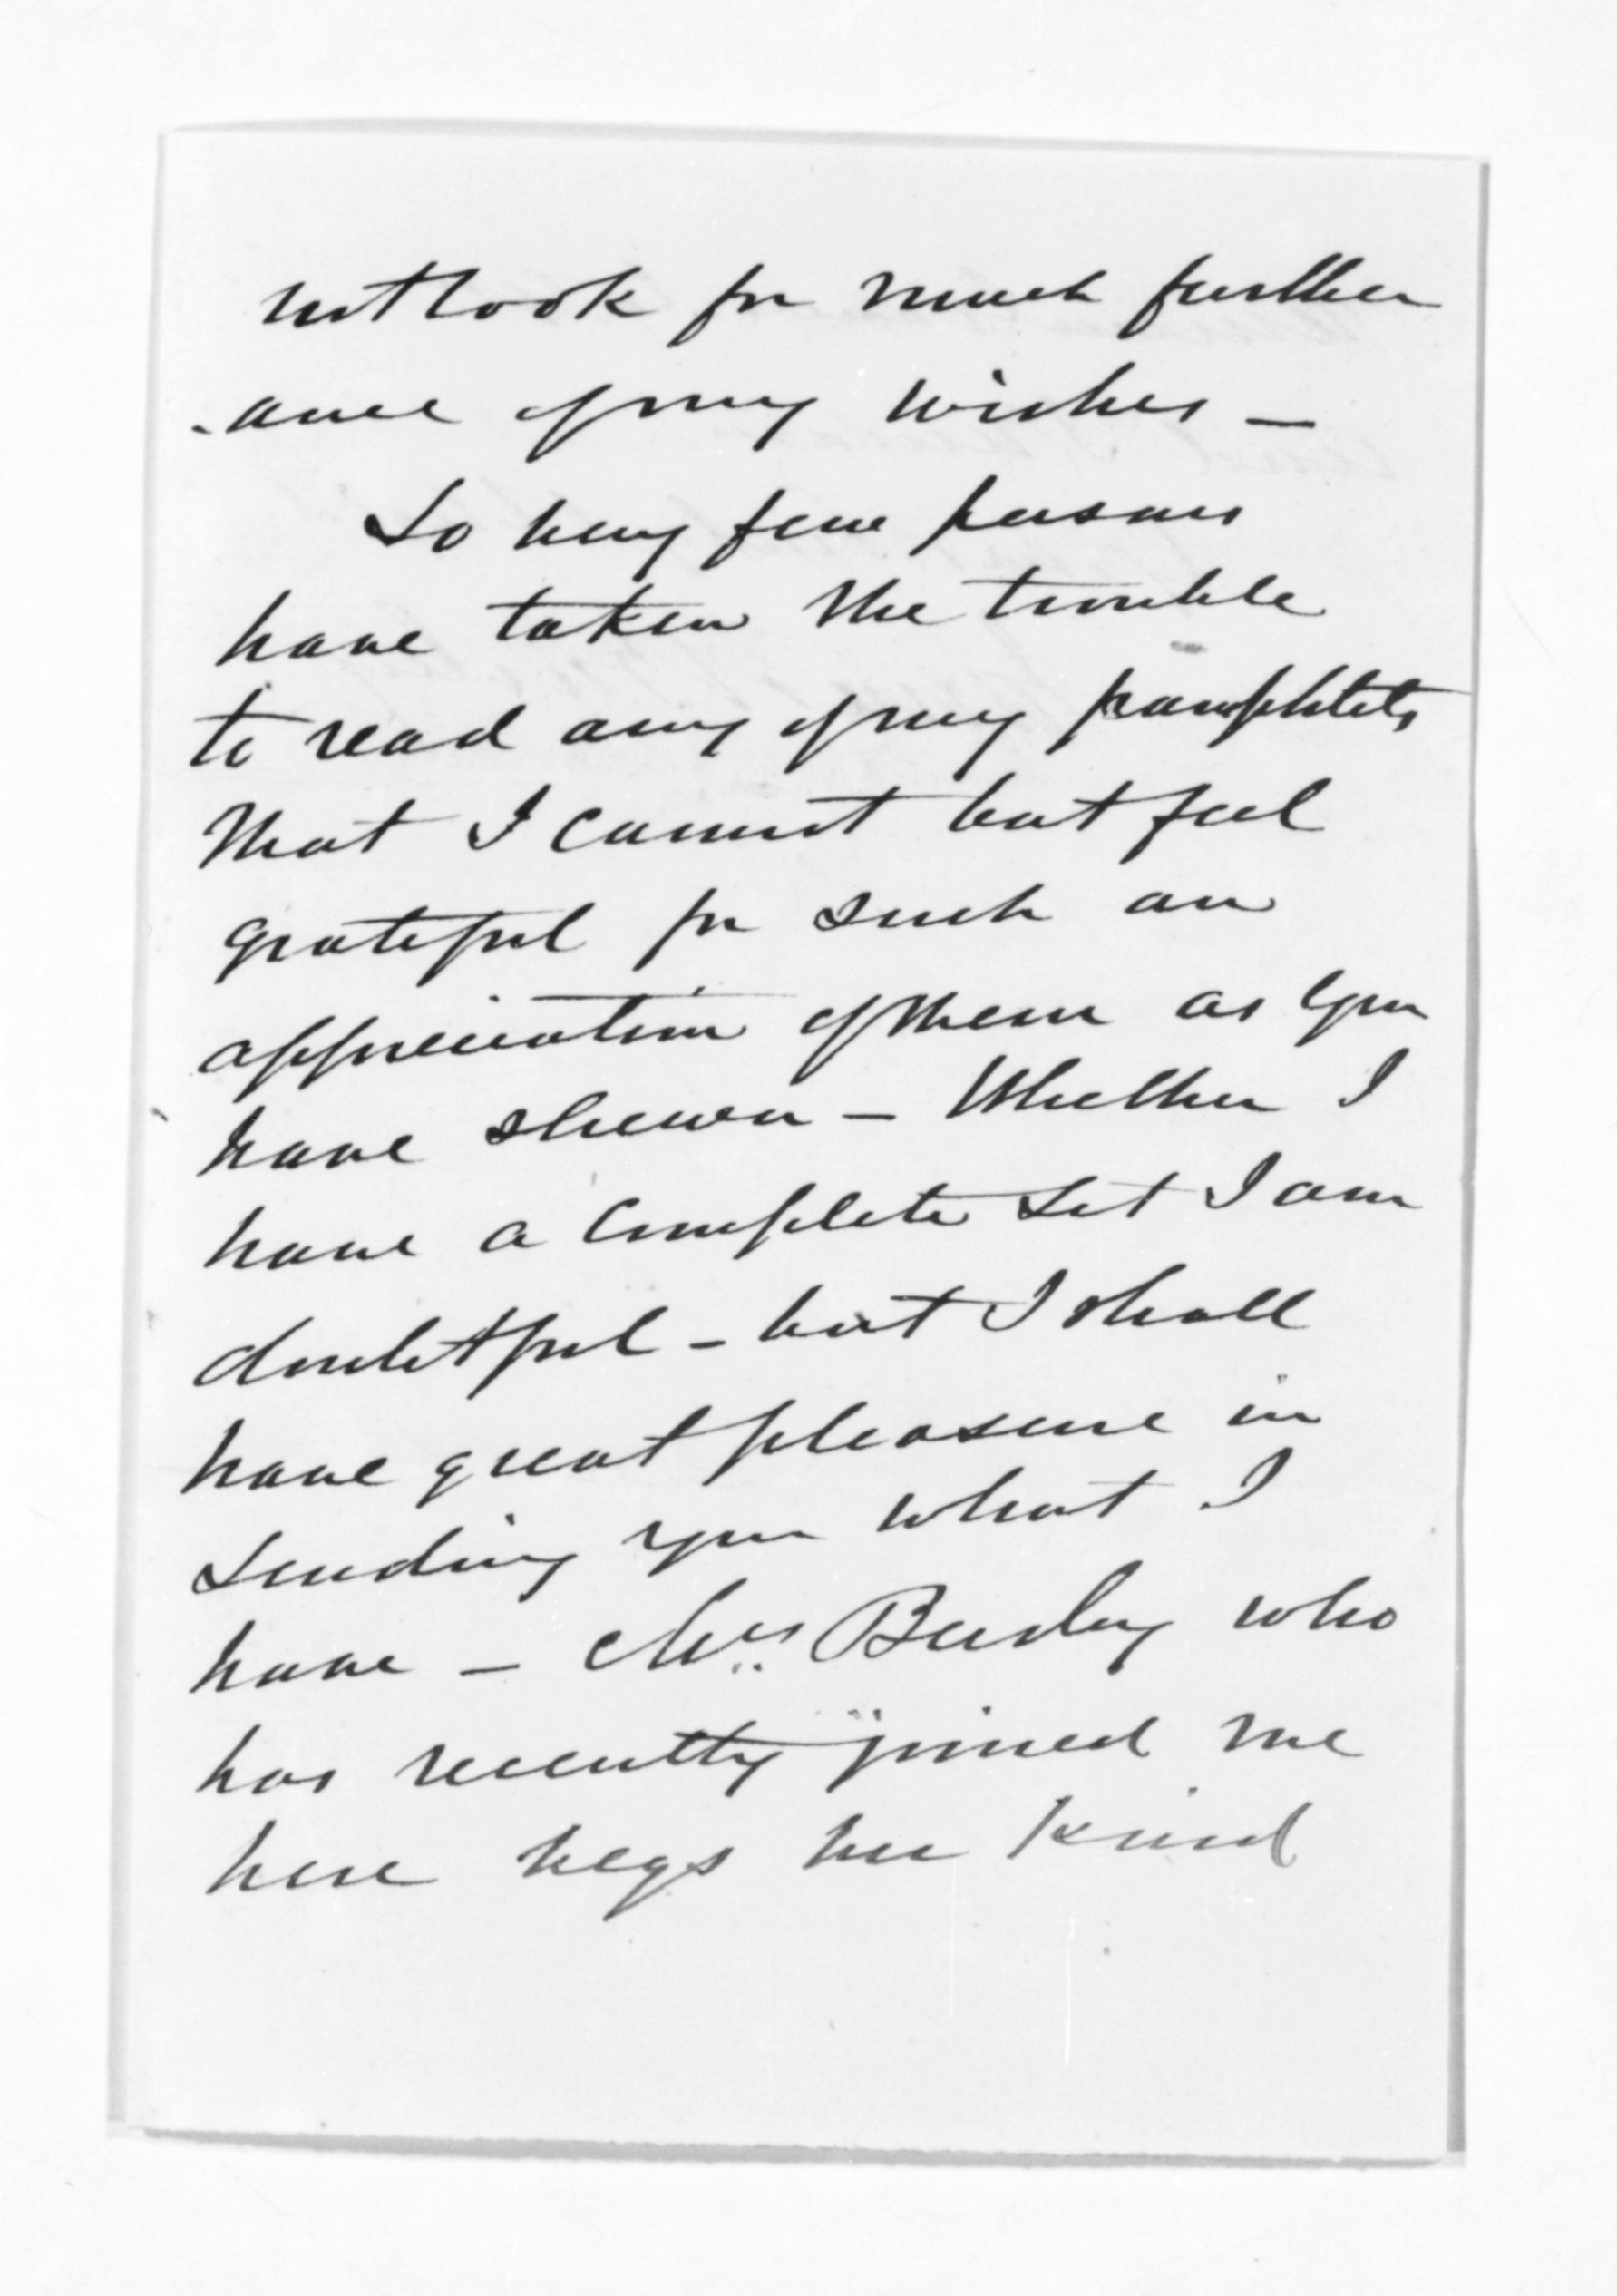 not look for much further
-ance of my wishes —
So very few persons
have taken the trouble
to read any of my pamphlets
that I cannot but feel
grateful for such an
appreciation of them as you
have shewn — Whether I
have a complete set I am
doubtful — but I shall
have great pleasure in
sending you what I
have — Mrs. who
has recently joined me
here begs her kind